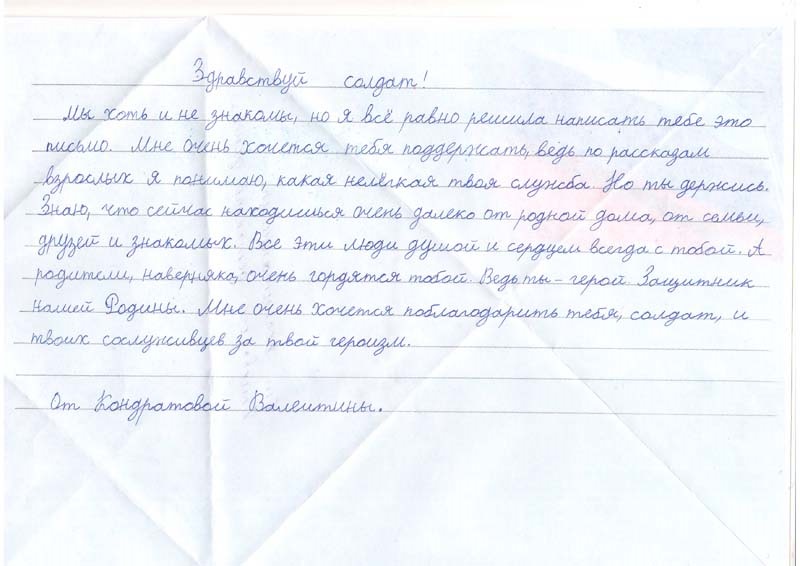 Здравствуй солдат!
Мы хоть и не знакомы, но я всё равно решила написать тебе это
письмо. Мне очень хочется тебя поддержать, ведь по рассказам
взрослых я понимаю, какая нелёгкая твоя служба. Но ты держись.
Знаю, что сейчас находишься очень далеко от родной дома, от семьи,
друзей и знакомых. Все эти люди душой и сердцем всегда с тобой. А
родители, наверняка, очень гордятся тобой. Ведь ты - герой. Защитник
нашей Родины. Мне очень хочется поблагодарить тебя, солдат, и
твоих сослуживцев за твой героизм.
От Кондратовой Валентины.